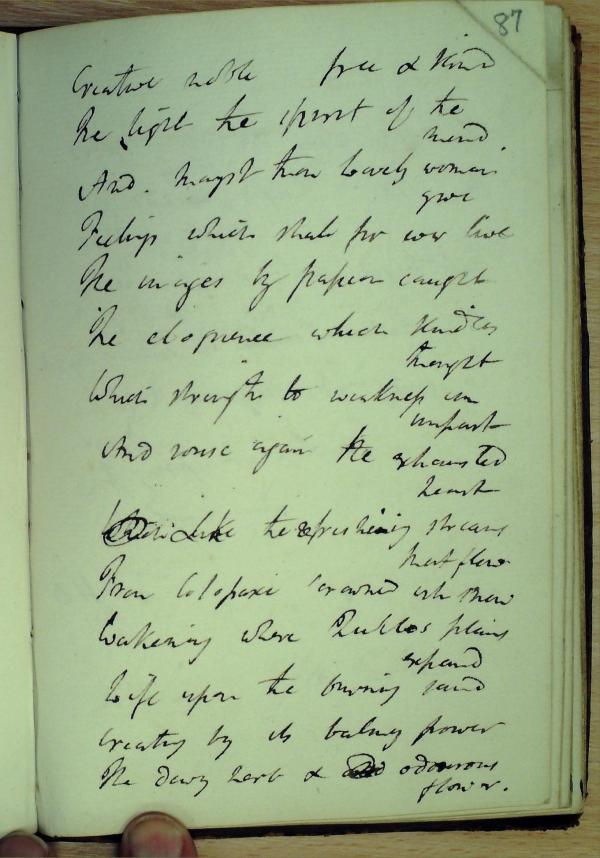 87
Creative noble free & kind
The light the spirit of the
mind
And mayst thou lovely woman
give
Feelings which shall for ever live
The images by passion caught
The eloquence which kindles
thought
Which strength to weakness can
impart
And rouse again the exhausted
heart
Like the refreshing streams
that flow
From Cotopaxi crowned with snow
Wakening where Pueblos plains
expand
Life upon the burning sand
Creating by its balmy power
The dewy herb & odourous
flower.